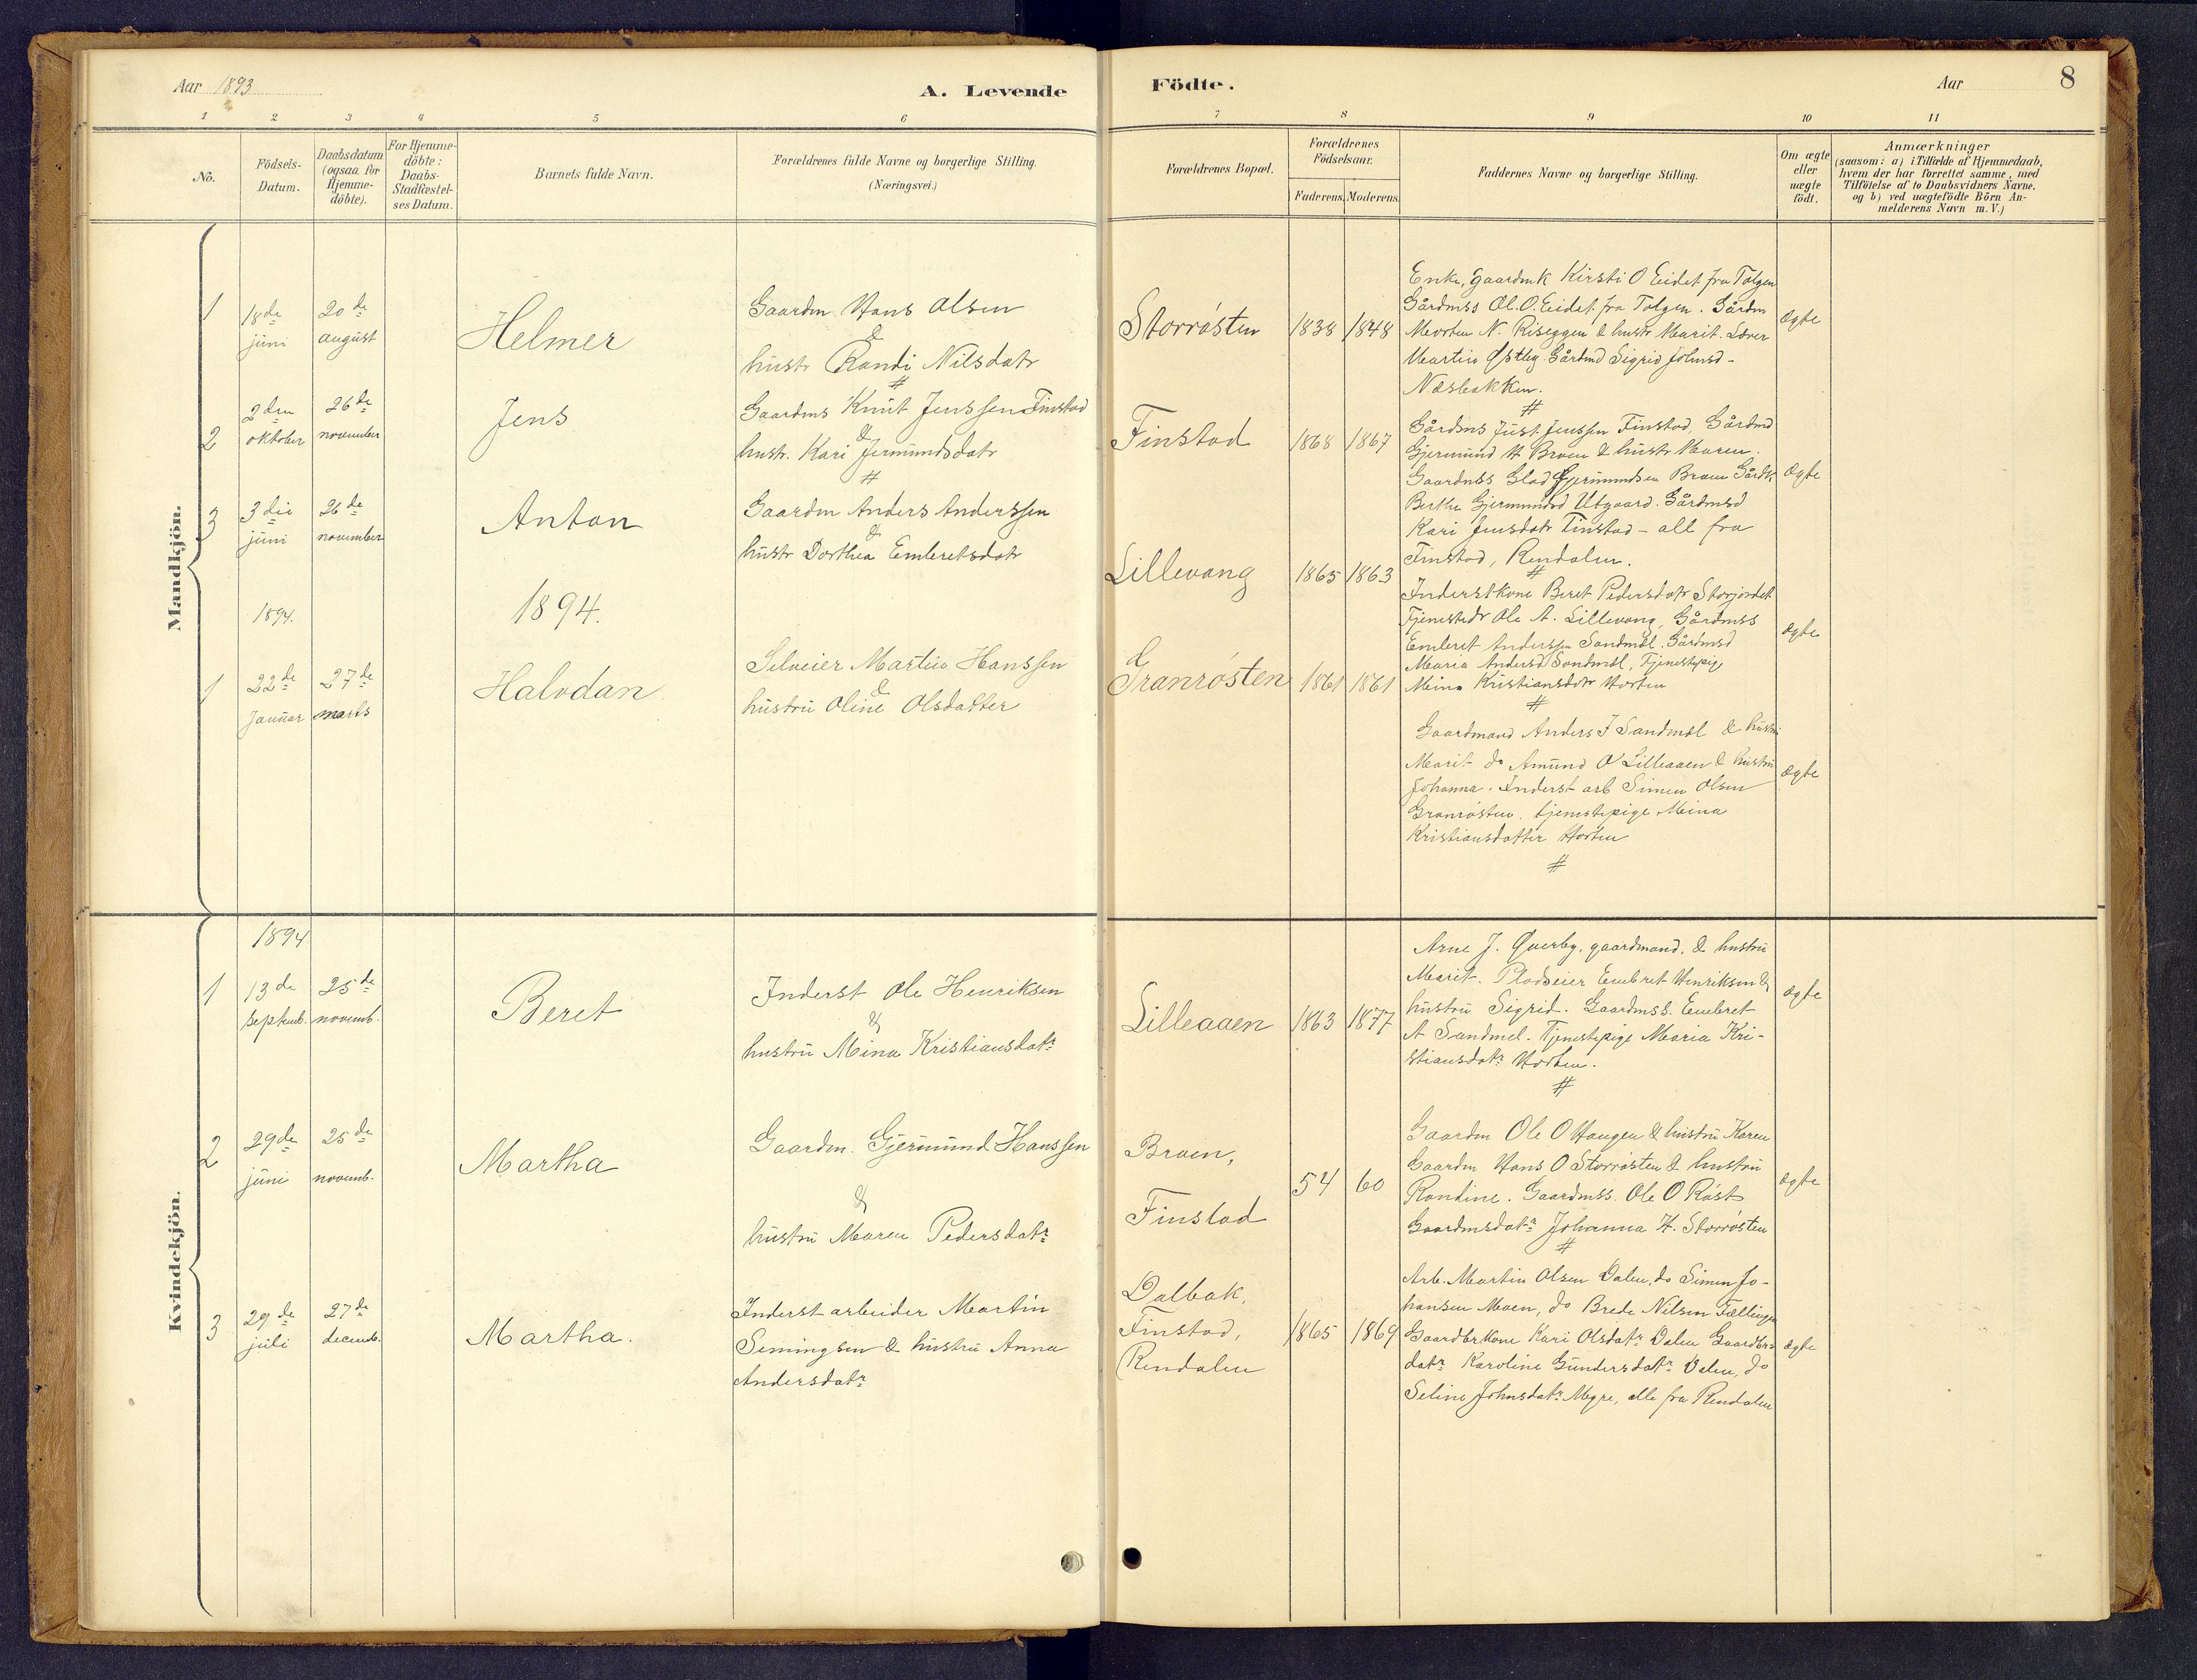 Aar 1893
A. Levende
Födte.
Aar
8
1 2 3 4 5 6 7 8 9 10 11
No.
Födsels-
Datum.
Daabsdatum
(ogsaa for
Hjemme-
döbte).
For Hjemme-
döbte:
Daabs-
Stadfæstel-
ses Datum.
Barnets fulde Navn.
Forældrenes fulde Navne og borgerlige Stilling.
(Næringsvei.)
Forældrenes Bopæl.
Forældrenes
Födselsaar.
Faderens. Moderens.
Faddernes Navne og borgerlige Stilling.
Om ægte
eller
uægte
födt.
Anmærkninger
(saasom: a) i Tilfælde af Hjemmedaab,
hvem der har forrettet samme, med
Tilföielse af to Daabsvidners Navne.
og b) ved uægtefödte Börn An-
melderens Navn m. V.)
Mandkjön.
1
18de
juni
20de
august
Helmer
Gaardm Hans Olsen
&
hustr Randi Nilsdatr
#
Storrøsten
1838
1848
Enke, gaardmk Kirsti O Eidet fra Tolgen
Gårdmss Ol. O. Eidet fra Tolgen. Gårdm
Morten N. Riseggen & hustr Marit. Lærer
Martin Østby. Gårdmd Sigrid Johnsd-
Næsbakken.
#
Ægte
2
2den
oktober
26de
november
Jens
Gaardms Knut Jenssen Finstad
&
hustr. Kari Jermundsdatr
#
Finstad
1868
1867
Gårdms Just Jenssen Finstad. Gårdmd
Gjermund H Braen & hustr Maren.
Gaardmss Glad Gjermundsen Braen Gårdk
Berthe Gjermundsd Utgaard. Gårdmsd
Kari Jensdatr Finstad - all fra
Finstad, Rendalen.
#
Ægte
3
3die
juni
26de
november
Anton
Gaardm Anders Anderssen
&
hustr Dorthea Embretsdatr
Lillevang
1865
1863
Inderstkone Beret Pedersdatr Storjordet
Tjenestedr Ole A. Lillevang, Gårdmss
Embret Anderssen Sandmæl. Gårdmsd
Maria Andersd Sandmæl, Tjenestepig
Mina Kristiansdatr Horten
#
Ægte
1894.
1894.
1
22de
Januar
27de
marts
Halvdan
Selveier Martin Hanssen
&
hustru Oline Olsdatter
Granrøsten
1861
1861
Gaardmand Anders J Sandmæl & hustru
Marit do Amund O Lilleaaen & hustru
Johanna. Inderst arb Simen Olsen
Granrøsten. tjenestepige Mina
Kristiansdatter Horten
#
Ægte
Kvindekjön.
1894
1
13de
septemb.
25de
novemb.
Beret
Inderst Ole Henriksen
&
hustru Mina Kristiansdatr
Lilleaaen
1863
1877
Arne J. Øverby, gaardmand, & hustru
Marit. Pladseier Embret Henriksen &
hustru Sigrid. Gaardmss. Embret
A Sandmel. Tjenestepige Maria Kri-
stiansdatr Horten.
#
ægte
2
29de
juni
25de
novemb.
Martha
Gaardm. Gjermund Hanssen
&
hustru Maren Pedersdatr
Braen,
Finstad
54
60
Gaardm Ole O Haugen & hustru Karen
Gaardm Hans O Storrøsten & hustru
Randine. Gaardmss. Ole O Røst
Gaardmsdatr Johanna H. Storrøsten
#
ægte
3
29de
juli
27de
decemb.
Martha.
Inderst arbeider Martin
Semingsen & hustru Anna
Andersdatr
Dalbak,
Finstad,
Rendalen
1865
1869
Arb. Martin Olsen Dalen, do Simen Jo-
hansen Moen, do Brede Nilsen Fællingen
Gaardbrkone Kari Olsdatr Dalen Gaardbr-
datr Karoline Gundersdatr Dalen, do
Seline Johnsdatr Mgre, alle fra Rendalen
ægte